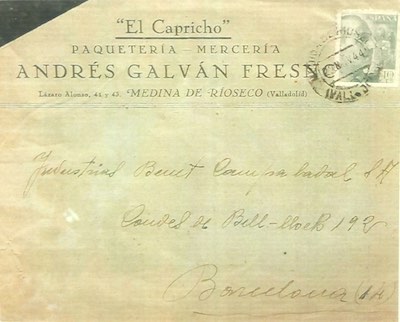 "El Capricho"
PAQUETERÍA - MERCERÍA
ANDRÉS GALVÁN FRESNO
Lázaro Alonso, 41 y 43. MEDINA DE RIOSECO (Valladolid)
ESPAÑA
(VALL
Industrias Benet Campabadal S.A
Condes de Bell-lloch 192
Barcelona